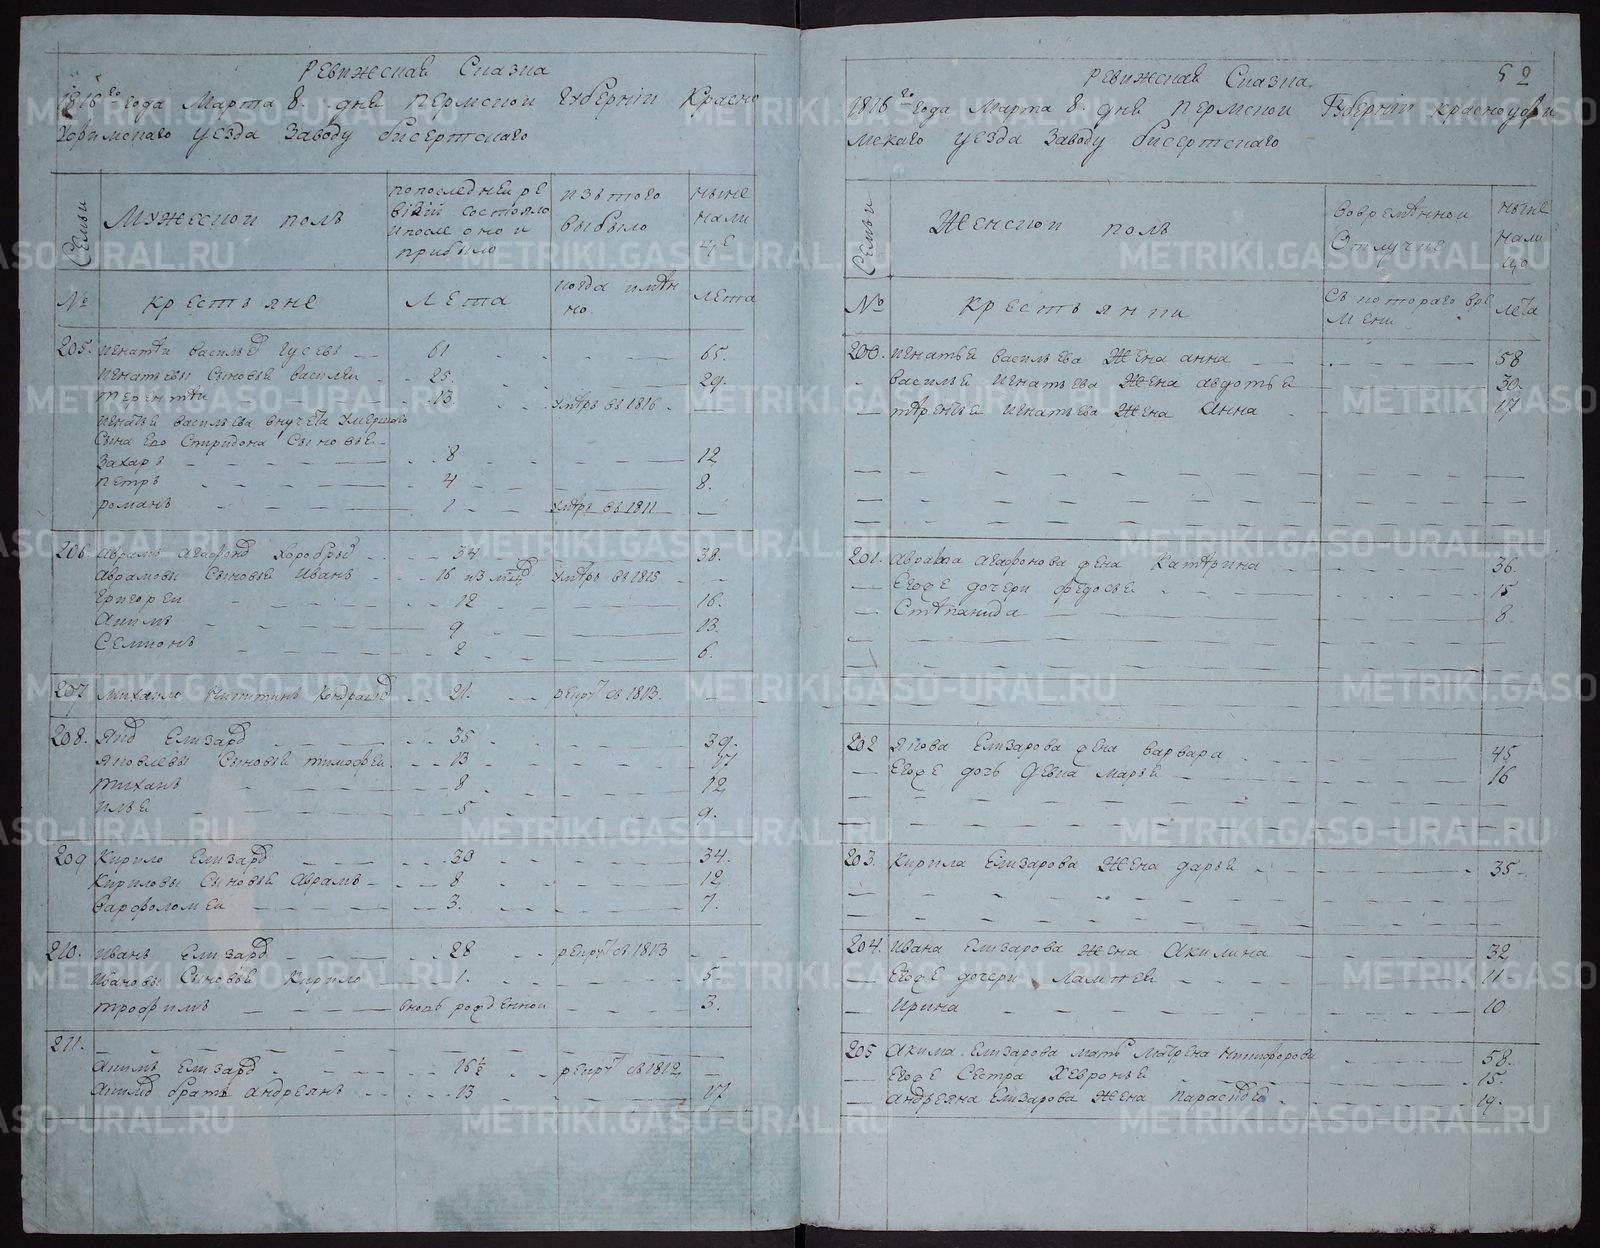 Ревижская Сказка
1816го года Марта 8. дня Пермской Губернiи Красно
уфимского уезда Заводу бисертского
Семьи
Мужескои полъ
попоследней ре
вiзiи состояло
ипосле оно и
прибыло
изътого
выбыло
ныне
нали
це
№
крестьяне
Лета
когда имян
но.
лета
205. игнатеи васильевъ гусевъ 61 65.
игнатьевы сыновья василеи 25. 29.
терентеи 13 умеръ въ 1816
игнатья васильева внучета умершаго
сына его спиридона сыновья
Захаръ 8 12
петръ 4 8.
романъ 1 умеръ въ 1811
206. Аврамъ агафоновъ хоробрыхъ 34 38.
Аврамовы сыновья Иванъ 16 умеръ въ 1815
Григореи 12 16.
Акимъ 9 13.
Семионъ 2 6.
207 михаило никитинъ кондрашовъ 21. рекрут въ 1813.
208. яковъ Елизаровъ 35 39.
яковлевы сыновья тимофеи 13 17
тиханъ 8 12
илья 5 9.
209 Кирило Елизаровъ 30 34.
Кириловы сыновья Аврамъ 8 12
варфоломеи 3. 7.
210. Иванъ Елизаровъ 28 рекрут въ 1813
Ивановы сыновья Кирило 1. 5
трофимъ вновь рожденнои 3.
211.
Акимъ Елизаровъ 16½ рекрут въ 1812
Акимовъ братъ андреянъ 13 17
52
Ревижская Сказка
1816го года Марта 8. дня Пермской Губернiи красноуфи
мскаго уезда Заводу бисертскаго
Семьи
Женскои полъ
вовременнои
Отлучке
ныне
нали
цо
№
крестьянки
Съ котораго вре
мени
лета
200. игнатья васильева жена анна 58
василья игнатьева жена авдотья 30
терентья игнатьева жена анна 17
201. Аврама агафонова жена Катерина 36.
Егоже дочери федосья 15
Степанида 8.
202 якова Елизарова жена варвара 45
Егоже дочь девка марья 16
203. кирила Елизарова жена дарья 35
204. Ивана Елизарова жена Акилина 32
Егоже дочери 11
Ирина 10
205 Акима Елизарова мать матрена никифорова 58.
Егоже Сестра хевронья 15.
андреяна Елизарова жена 19.
METRIKI.GASO-URAL.RU